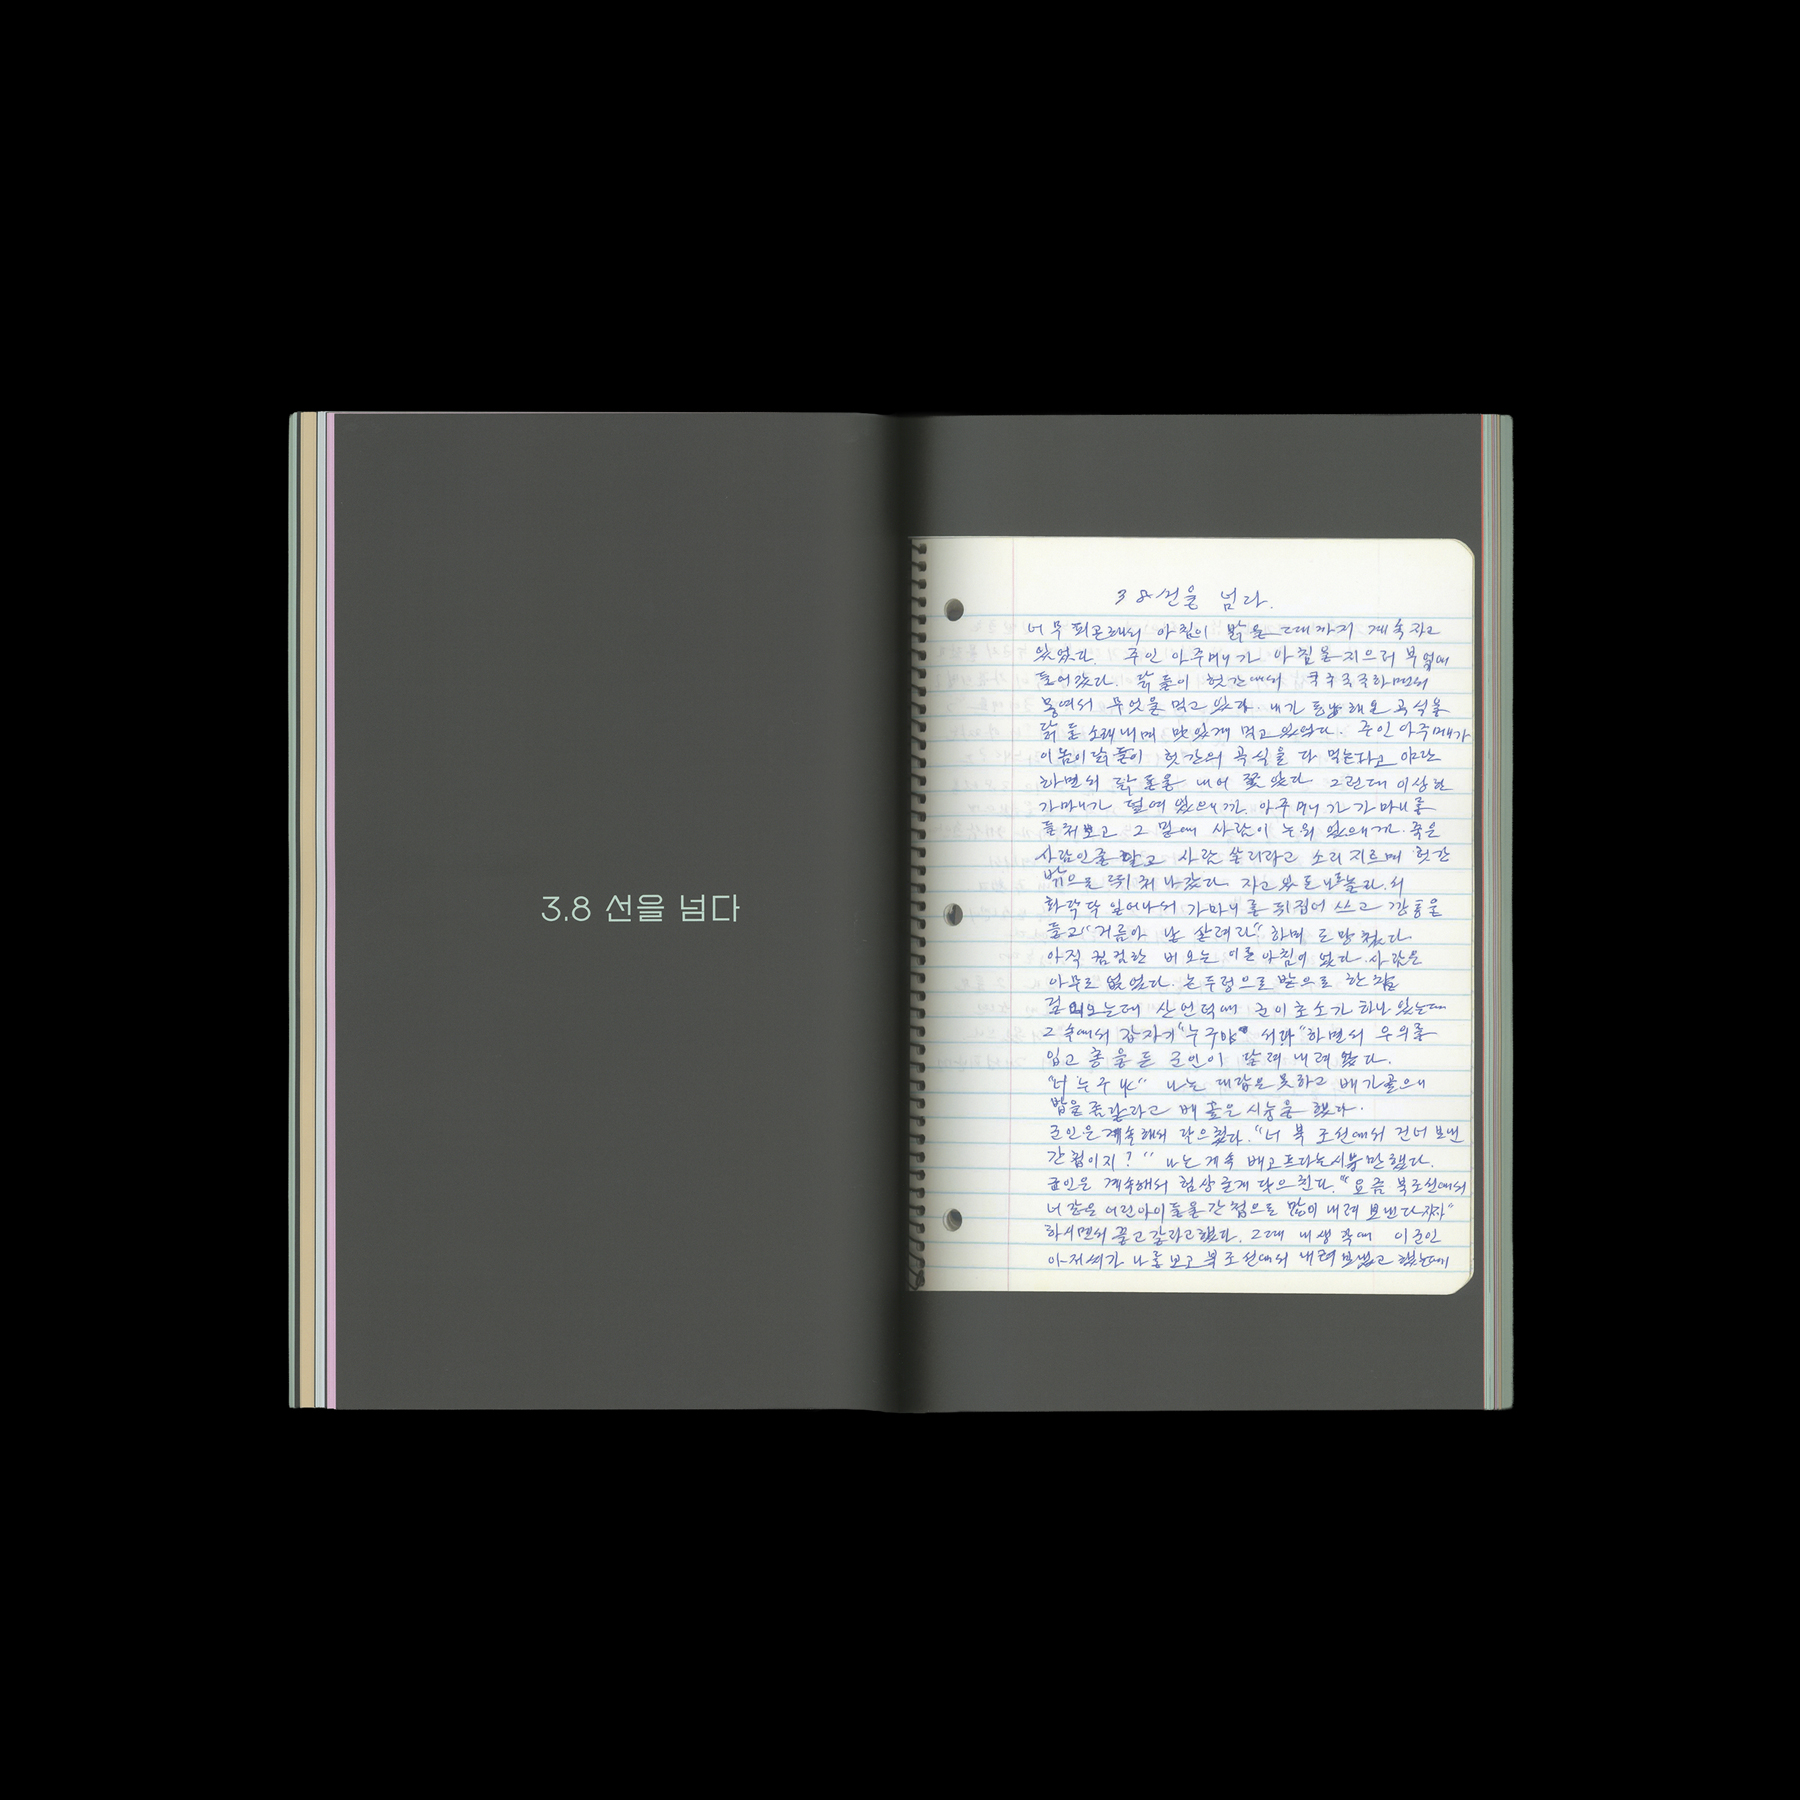 3.8 선을 넘다
38선을 넘다.
너무 피곤해서 아침이 밝을 그때까지 계속 자고
있었다. 주인 아주머니가 아침을 지으러 부엌에
들어갔다. 닭들이 헛간에서 하면서
모여서 무엇을 먹고 있다. 내가 해온 곡식을
닭들 소래내며 맛있게 먹고 있었다. 주인 아주머니가
이놈이 닭들이 헛간의 곡식을 다 먹는다고 야단
하면서 닭들을 내어 쫓았다 그런데 이상한
가마니가 있으니까. 아주머니가 가마니를
들춰보고 그 밑에 사람이 누워 있으니까. 죽은
사람인줄 알고 사람 살리라고 소리 지르며 헛간
밖으로 뛰쳐 나갔다. 자고 있든 나도 놀라서
화닥닥 일어나서 가마니를 뒤집어 쓰고 깡통을
들고 "거름아 날 살려라" 하며 도망쳤다.
아직 컴컴한 비오는 이른 아침이 었다. 사람은
아무도 없었다. 논두렁으로 밭으로 한참을
오는데 산 언덕에 초소가 하나 있는데
그 속에서 갑자기 "누구야 서라" 하면서 우의를
입고 총을 든 군인이 달려 내려 왔다.
"너 누구냐" 나는 대답은 못하고 배가골으니
밥을 좀 달라고 배 골은 시늉을 했다.
군인은 계속해서 닥으쳤다. "너 북조선에서 건너 보낸
간첩이지?" 나는 계속 배고프다는 시늉만 했다.
군인은 계속해서 험상굳게 닷으친다. "요즘 북조선에서
너 같은 어린아이들을 간첩으로 많이 내려 보낸다 가자"
하시면서 끌고 갈라고 했다. 그때 내 생각에 이 군인
아저씨가 나를 보고 북조선에서 내려 보냈고 했는데